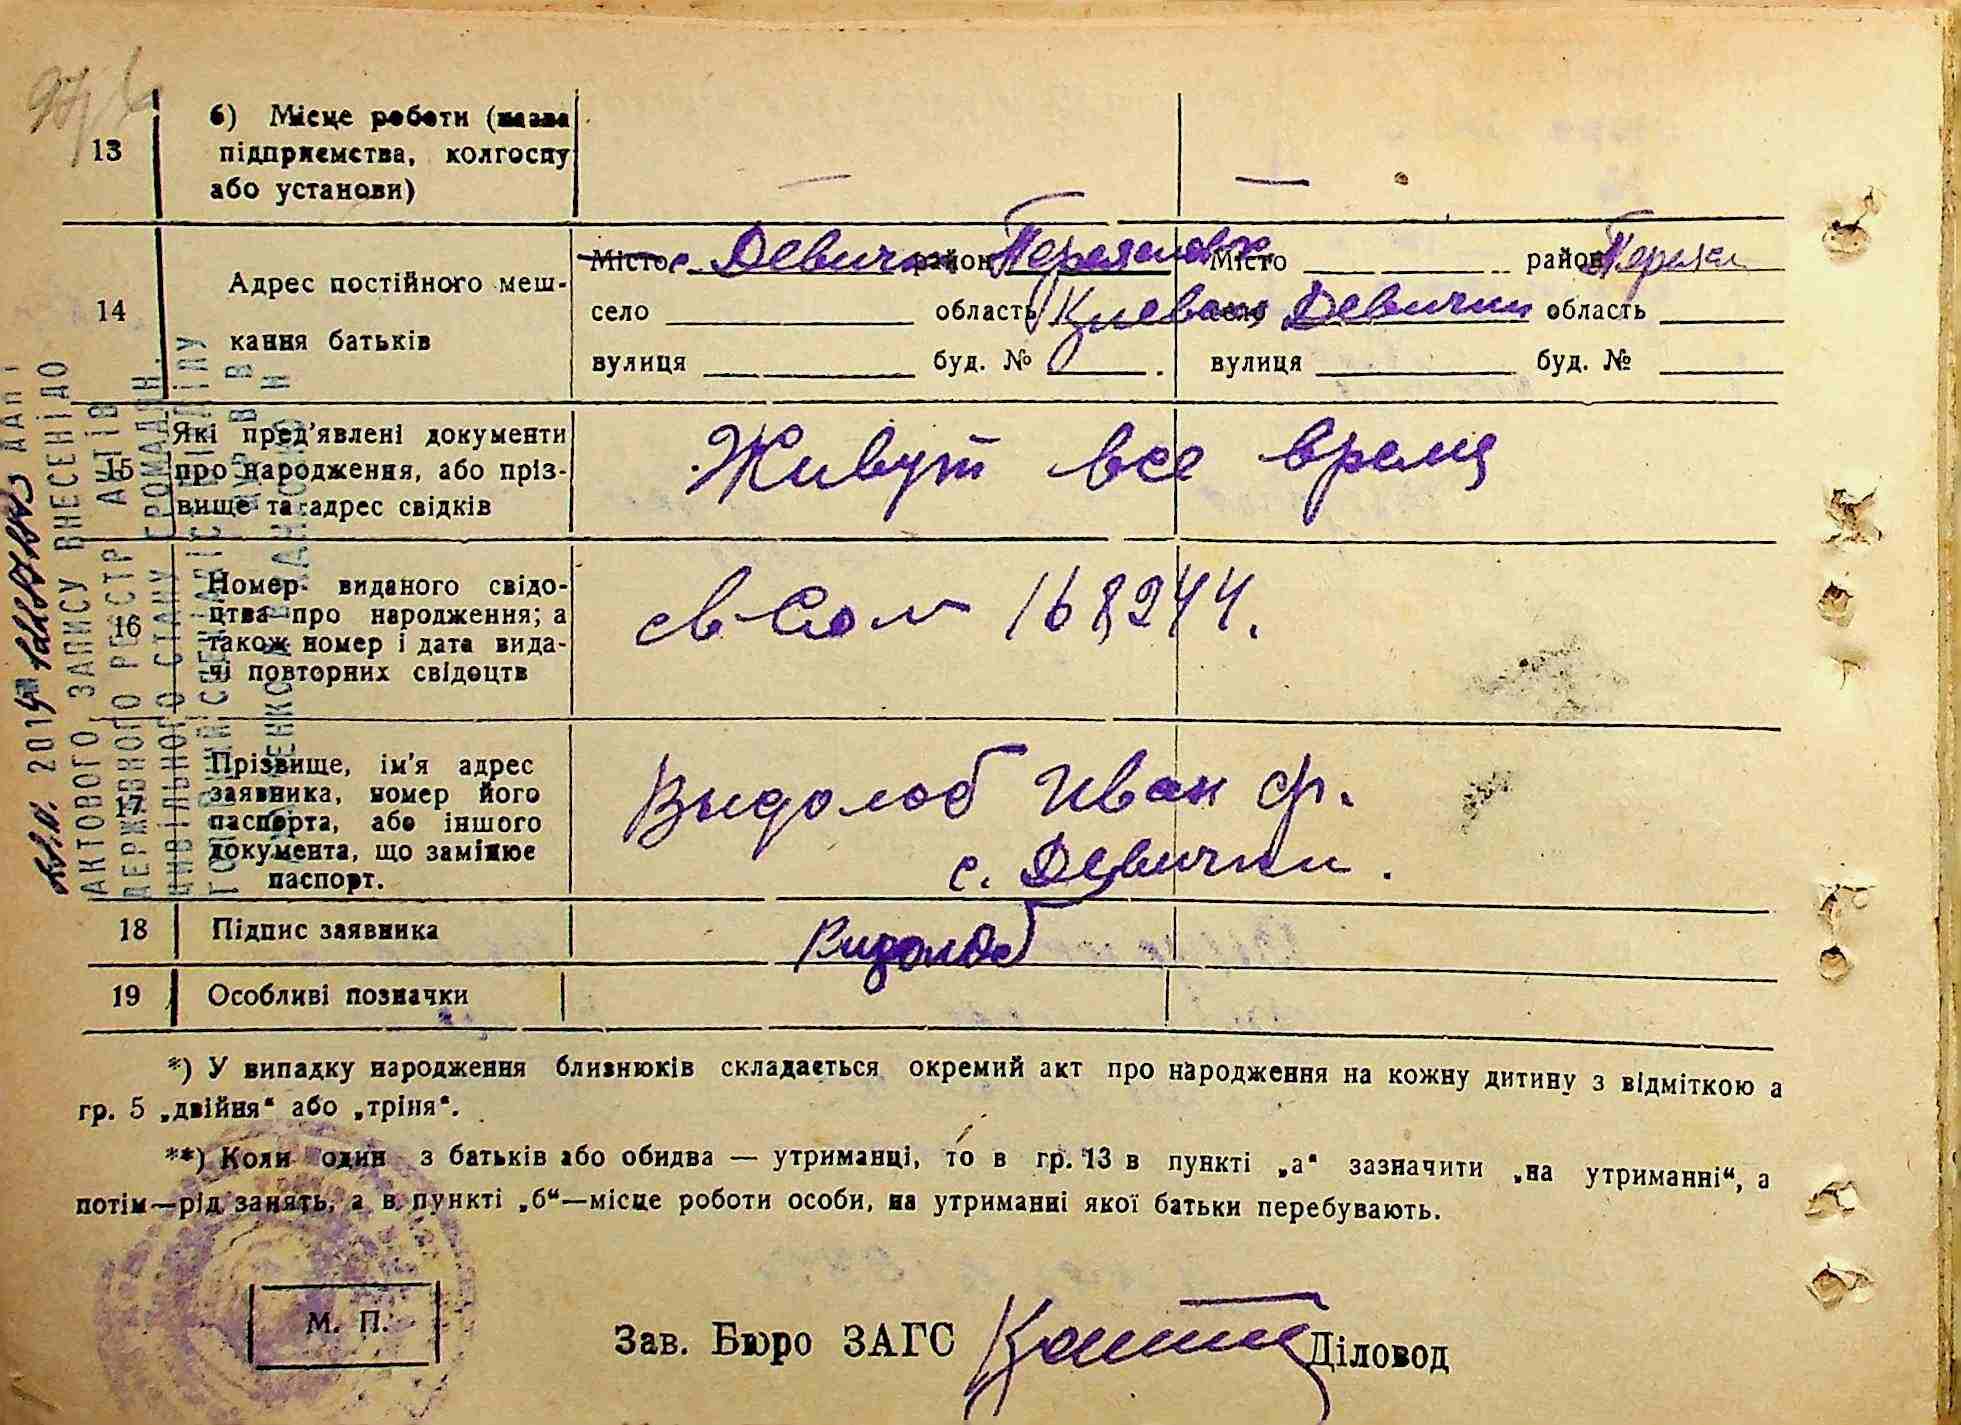 13
б) Місце роботи (назва
підприємства, колгоспу
або установи)
—
—
14
Адрес постійного меш-
кання батьків
Місто с. Девички район Переяславск
село область Киевская
вулиця буд. №
Місто район Переясл
село Девички область
вулиця буд. №
15
Які пред'явлені документи
про народження, або пріз-
вище та адрес свідків
Живут все время
16
Номер виданого свідо-
цтва про народження; а
також номер і дата вида-
чі повторних свідоцтв
168244.
17
Прізвище, ім'я адрес
заявника, номер його
паспорта, або іншого
документа, що замінює
паспорт.
Выдолоб Иван Ф.
с. Девички.
18
Підпис заявника
Видолоб
19
Особливі позначки
*) У випадку народження близнюків складається окремий акт про народження на кожну дитину з відміткою а
гр. 5 „двійня“ або „тріня“.
**) Коли один з батьків або обидва — утриманці, то в гр. 13 в пункті „а“ зазначити „на утриманні“, а
потім—рід занять, а в пункті „б“—місце роботи особи, на утриманні якої батьки перебувають.
М. П.
Зав. Бюро ЗАГС
Діловод
АКТОВОГО ЗАПИСУ ВНЕСЕНІ ДО
ДЕРЖАВНОГО РЕЄСТР АКТІВ
ЦИВІЛЬНОГО СТАНУ ГРОМАДЯН.